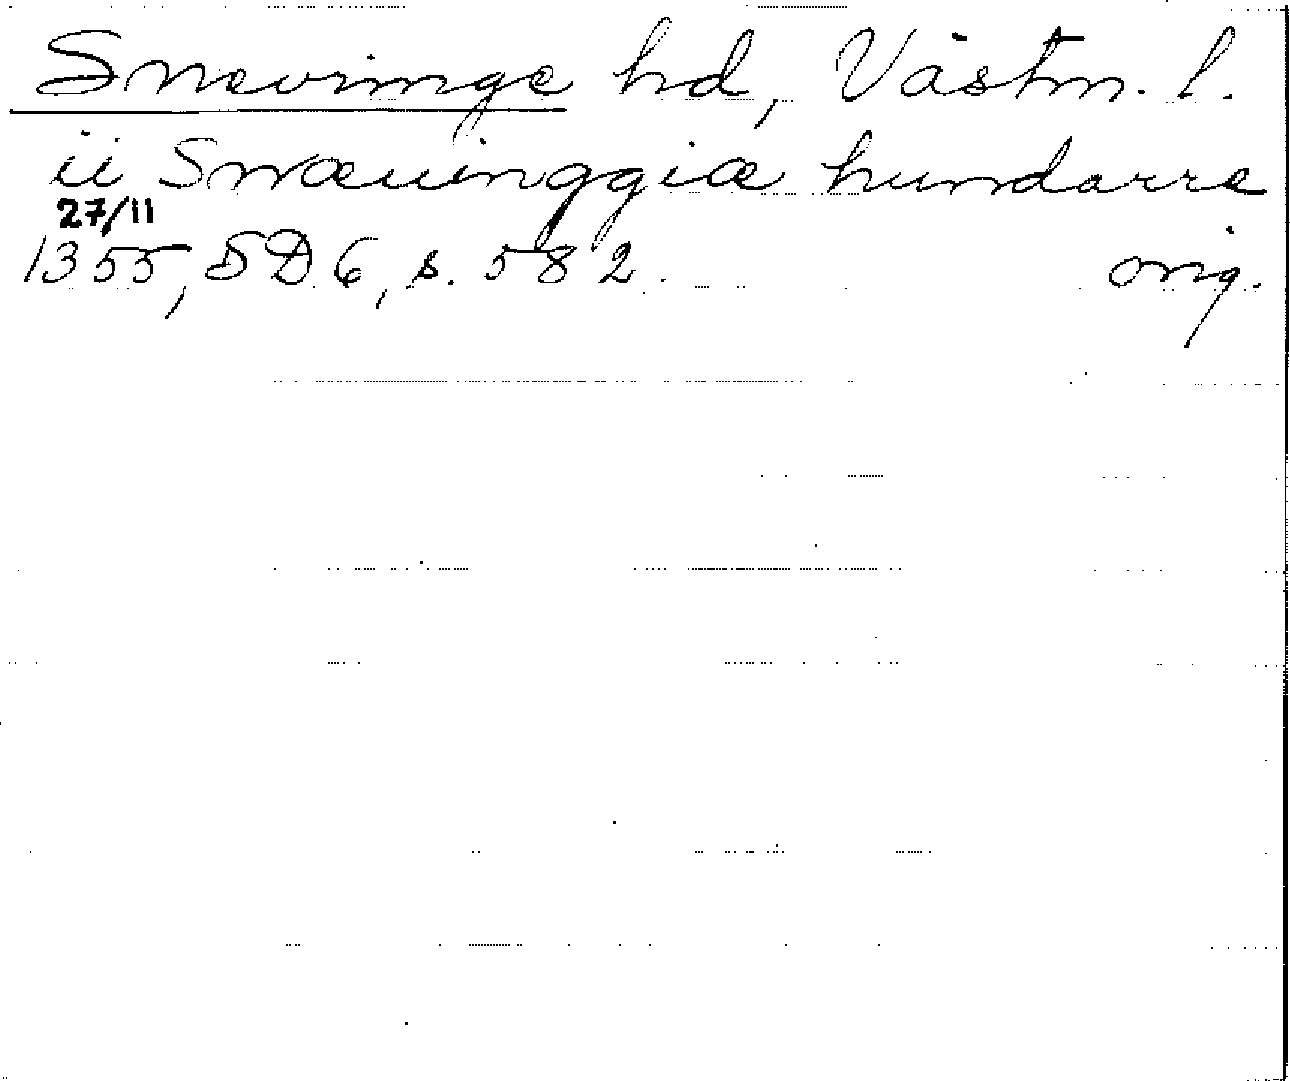 Snevringe hd, Västm. l.
ii Snæuinggiæ hundarre
27/11
1355, SD 6, s. 582. orig.